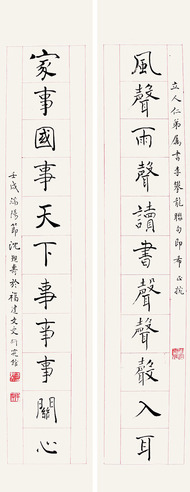 立人仁弟属書李攀龍聯句即希正
風聲雨聲讀書聲聲聲入耳
家事國事天下事事事關心
壬戌端陽節沈覲壽於福建文史研究館